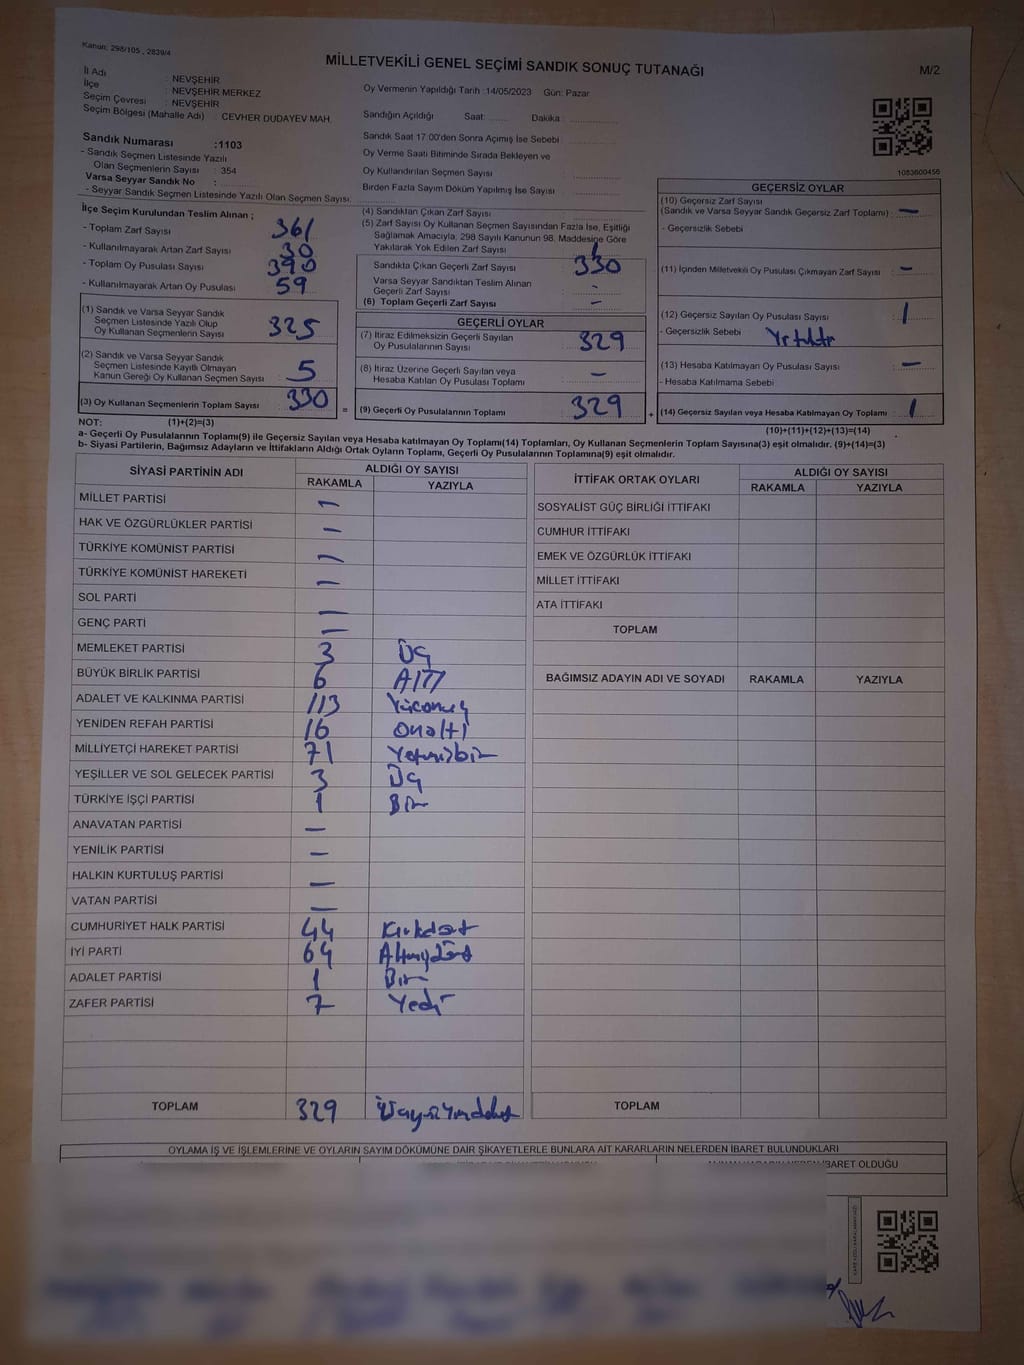 Kanun: 298/105 , 2839/4
MİLLETVEKİLİ GENEL SEÇİMİ SANDIK SONUÇ TUTANAĞI
M/2
İl Adı : NEVŞEHİR
İlçe : NEVŞEHİR MERKEZ
Seçim Çevresi : NEVŞEHİR
Seçim Bölgesi (Mahalle Adı) : CEVHER DUDAYEV MAH.
Sandık Numarası :1103
- Sandık Seçmen Listesinde Yazılı
Olan Seçmenlerin Sayısı : 354
Varsa Seyyar Sandık No :
- Seyyar Sandık Seçmen Listesinde Yazılı Olan Seçmen Sayısı:
Oy Vermenin Yapıldığı Tarih :14/05/2023 Gün: Pazar
Sandığın Açıldığı Saat: Dakika :
Sandık Saat 17:00'den Sonra Açımış İse Sebebi :
Oy Verme Saati Bitiminde Sırada Bekleyen ve
Oy Kullandırılan Seçmen Sayısı
Birden Fazla Sayım Döküm Yapılmış İse Sayısı
1083600456
İlçe Seçim Kurulundan Teslim Alınan ;
- Toplam Zarf Sayısı 361
- Kullanılmayarak Artan Zarf Sayısı 30
- Toplam Oy Pusulası Sayısı 390
- Kullanılmayarak Artan Oy Pusulası 59
(1) Sandık ve Varsa Seyyar Sandık
Seçmen Listesinde Yazılı Olup
Oy Kullanan Seçmenlerin Sayısı 325
(2) Sandık ve Varsa Seyyar Sandık
Seçmen Listesinde Kayıtlı Olmayan
Kanun Gereği Oy Kullanan Seçmen Sayısı 5
(3) Oy Kullanan Seçmenlerin Toplam Sayısı 330
(4) Sandıktan Çıkan Zarf Sayısı
(5) Zarf Sayısı Oy Kullanan Seçmen Sayısından Fazla İse, Eşitliği
Sağlamak Amacıyla; 298 Sayılı Kanunun 98. Maddesine Göre
Yakılarak Yok Edilen Zarf Sayısı
Sandıkta Çıkan Geçerli Zarf Sayısı 330
Varsa Seyyar Sandıktan Teslim Alınan
Geçerli Zarf Sayısı
(6) Toplam Geçerli Zarf Sayısı –
GEÇERLİ OYLAR
(7) İtiraz Edilmeksizin Geçerli Sayılan
Oy Pusulalarının Sayısı 329
(8) İtiraz Üzerine Geçerli Sayılan veya
Hesaba Katılan Oy Pusulası Toplamı –
= (9) Geçerli Oy Pusulalarının Toplamı 329
GEÇERSİZ OYLAR
(10) Geçersiz Zarf Sayısı
(Sandık ve Varsa Seyyar Sandık Geçersiz Zarf Toplamı) : –
- Geçersizlik Sebebi
(11) İçinden Milletvekili Oy Pusulası Çıkmayan Zarf Sayısı : –
(12) Geçersiz Sayılan Oy Pusulası Sayısı : 1
- Geçersizlik Sebebi
(13) Hesaba Katılmayan Oy Pusulası Sayısı : –
- Hesaba Katılmama Sebebi
+ (14) Geçersiz Sayılan veya Hesaba Katılmayan Oy Toplamı 1
(10)+(11)+(12)+(13)=(14)
NOT: (1)+(2)=(3)
a- Geçerli Oy Pusulalarının Toplamı(9) ile Geçersiz Sayılan veya Hesaba katılmayan Oy Toplamı(14) Toplamları, Oy Kullanan Seçmenlerin Toplam Sayısına(3) eşit olmalıdır. (9)+(14)=(3)
b- Siyasi Partilerin, Bağımsız Adayların ve İttifakların Aldığı Ortak Oyların Toplamı, Geçerli Oy Pusulalarının Toplamına(9) eşit olmalıdır.
SİYASİ PARTİNİN ADI ALDIĞI OY SAYISI
RAKAMLA YAZIYLA
MİLLET PARTİSİ –
HAK VE ÖZGÜRLÜKLER PARTİSİ –
TÜRKİYE KOMÜNİST PARTİSİ –
TÜRKİYE KOMÜNİST HAREKETİ –
SOL PARTİ –
GENÇ PARTİ –
MEMLEKET PARTİSİ 3 Üç
BÜYÜK BİRLİK PARTİSİ 6 Altı
ADALET VE KALKINMA PARTİSİ 113 Yüzonüç
YENİDEN REFAH PARTİSİ 16 Onaltı
MİLLİYETÇİ HAREKET PARTİSİ 71 Yetmişbir
YEŞİLLER VE SOL GELECEK PARTİSİ 3 Üç
TÜRKİYE İŞÇİ PARTİSİ 1 Bir
ANAVATAN PARTİSİ –
YENİLİK PARTİSİ –
HALKIN KURTULUŞ PARTİSİ –
VATAN PARTİSİ –
CUMHURİYET HALK PARTİSİ 44 Kırkdört
İYİ PARTİ 64 Altmışdört
ADALET PARTİSİ 1 Bir
ZAFER PARTİSİ 7 Yedi
TOPLAM 329 Üçyüzyirmidokuz
İTTİFAK ORTAK OYLARI ALDIĞI OY SAYISI
RAKAMLA YAZIYLA
SOSYALİST GÜÇ BİRLİĞİ İTTİFAKI
CUMHUR İTTİFAKI
EMEK VE ÖZGÜRLÜK İTTİFAKI
MİLLET İTTİFAKI
ATA İTTİFAKI
TOPLAM
BAĞIMSIZ ADAYIN ADI VE SOYADI RAKAMLA YAZIYLA
TOPLAM
OYLAMA İŞ VE İŞLEMLERİNE VE OYLARIN SAYIM DÖKÜMÜNE DAİR ŞİKAYETLERLE BUNLARA AİT KARARLARIN NELERDEN İBARET BULUNDUKLARI
İBARET OLDUĞU